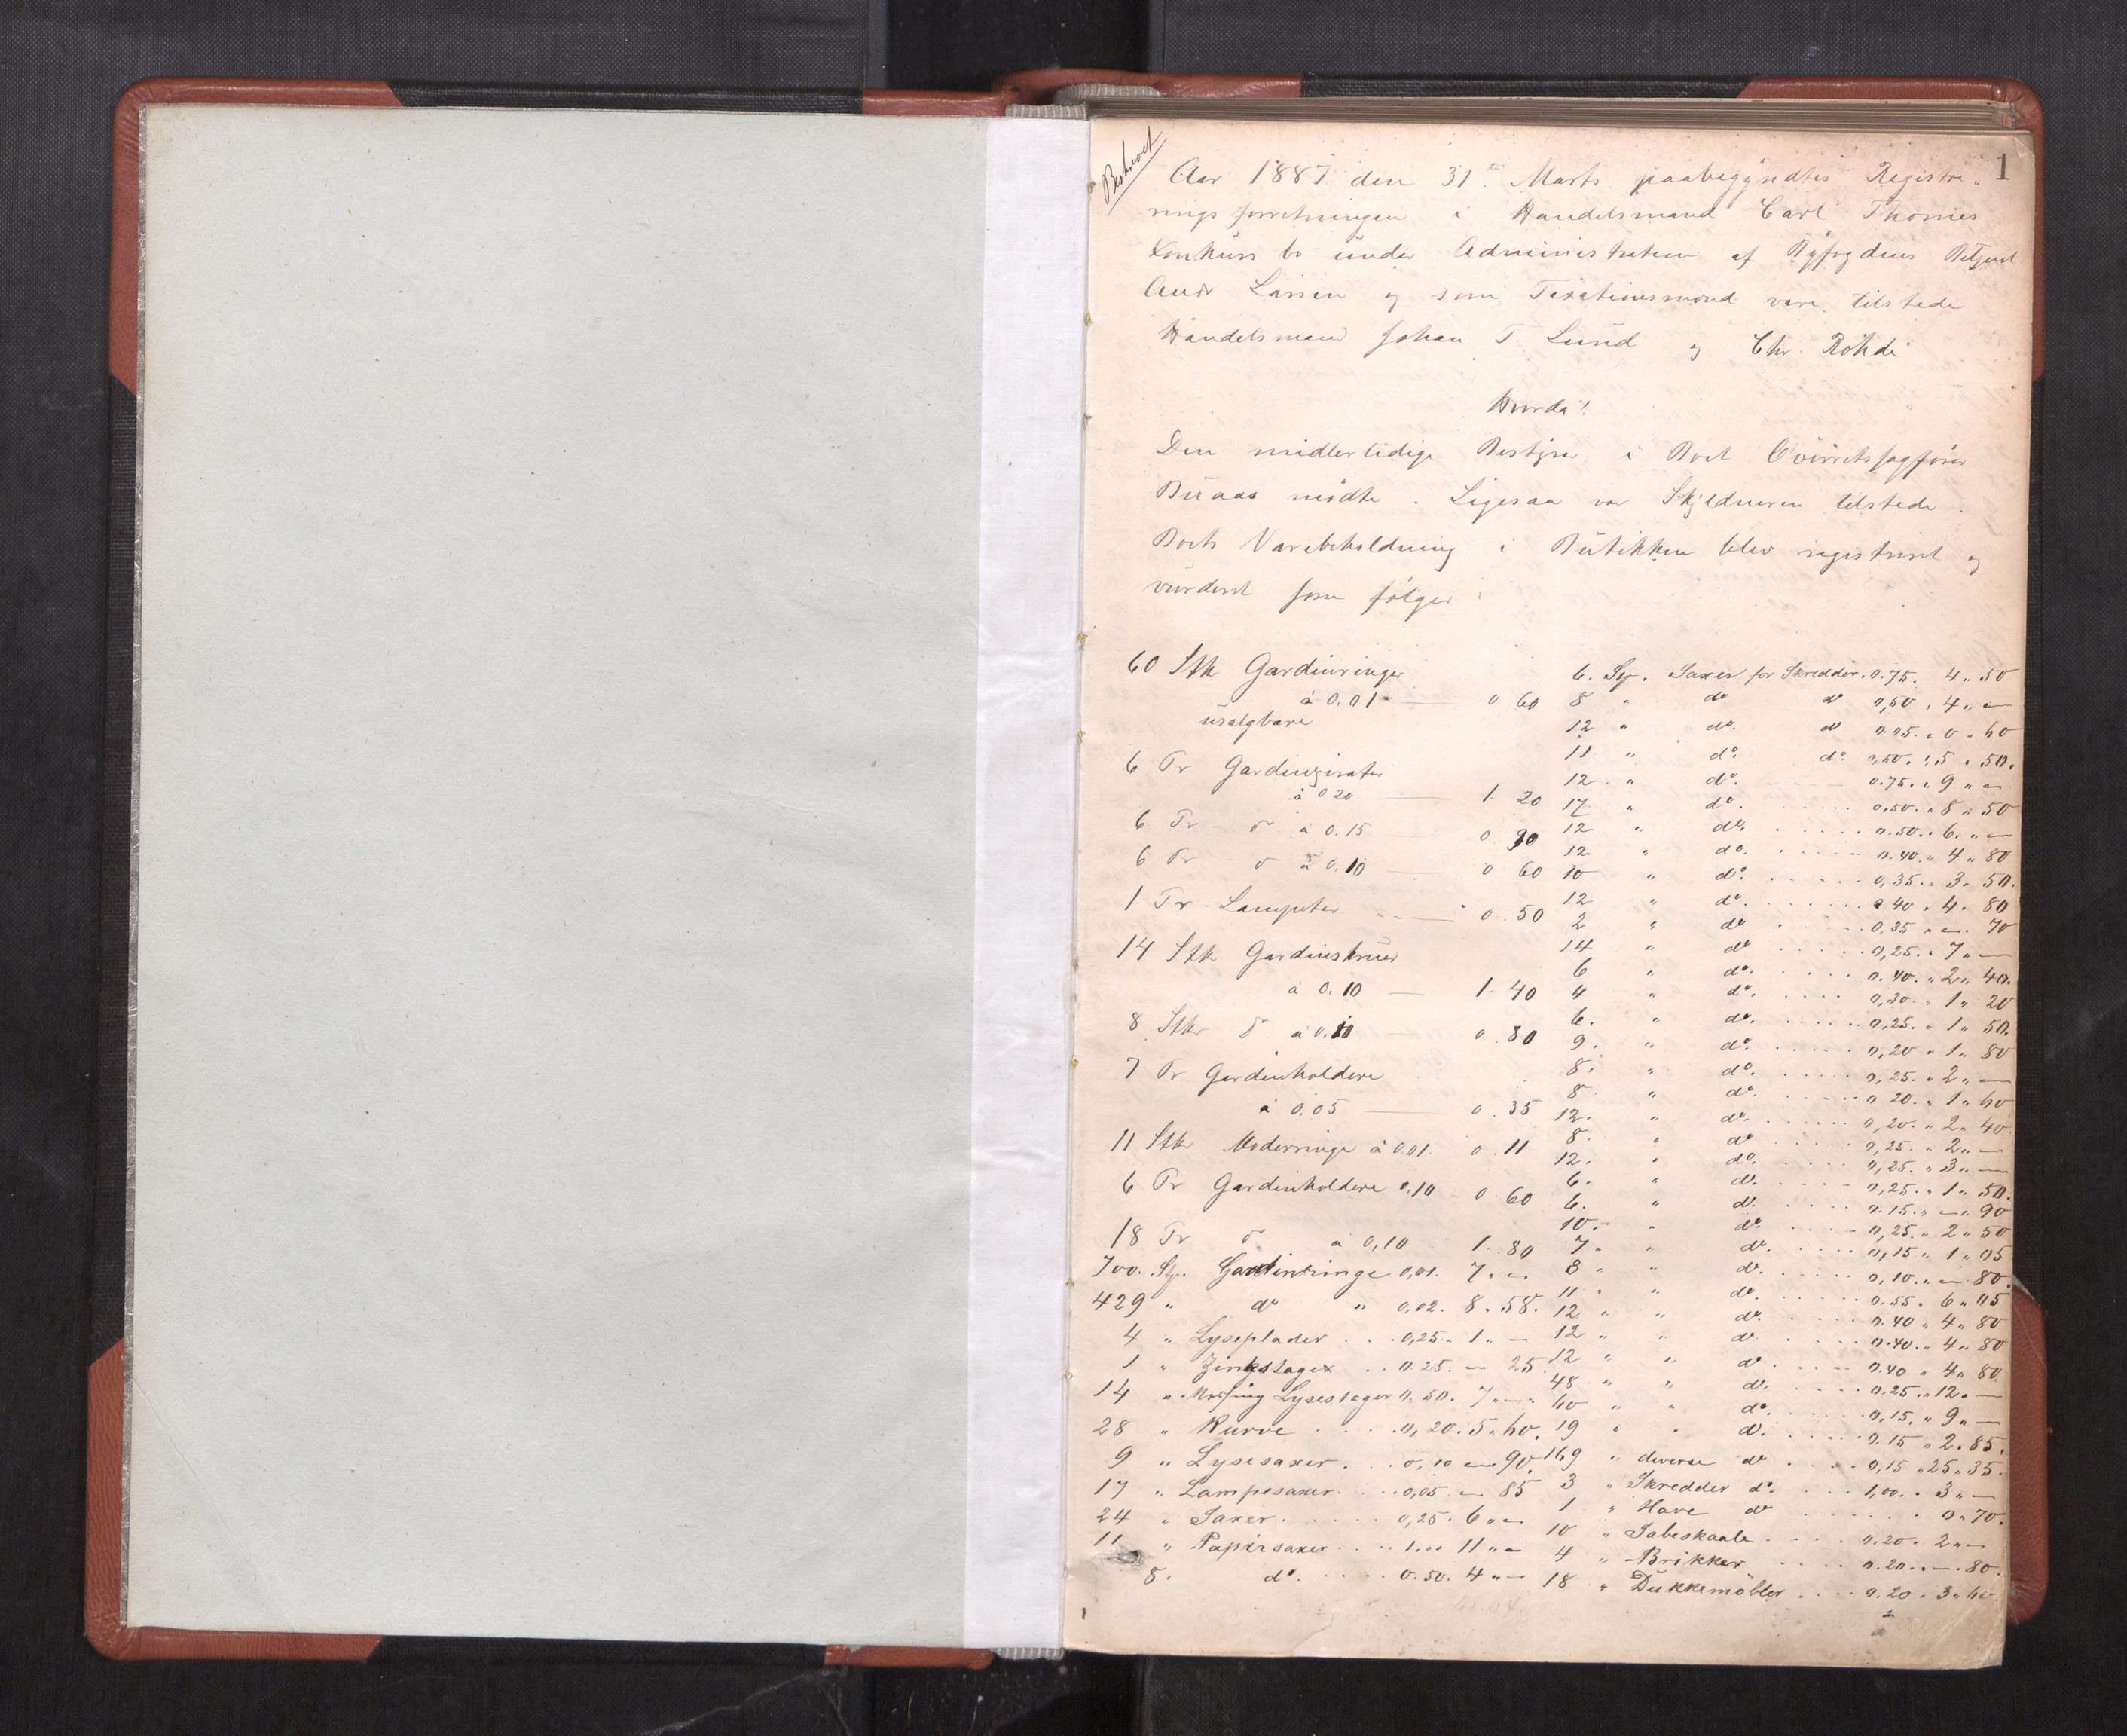 Beskrevet
1
Aar 1887 den 31te Marts paabegyndtes Registre-
ringsforretningen i Handelsmand Carl Thomes
Konkurs bo under Administration af Byfogdens Betjent
Andr Larsen og som Taxationsmænd vare tilstede
Handelsmand Johan T. Lund og Chr. Rohde
Hvorda!
Den midlertidige Bestyrer i Boet Overretssagfører
Buaas mødte. Ligesaa var Skyldneren tilstede.
Boets Varebeholdning i Butikken blev registreret og
vurderet som følger:
60 Stk Gardinringer
à 0.01 — 0 60
usalgbare
6 Pr Gardinzirater
à 0 20 — 1. 20
6 Pr - do à 0.15 0 90
6 Pr - do à 0.10 — 0 60
1 Pr Lampeter — 0.50
14 Stk Gardinskruer
à 0.10 — 1.40
8 Stkr do à 0.10 — 0.80
7 Pr Gardinholdere
à 0.05 — 0.35
11 Stkr Moderringe à 0.01. 0.11
6 Pr Gardinholdere 0,10 0 60
18 Pr do à 0,10 1.80
700. Sty. Gardinringe 0,01. 7 " —
429 " do " 0,02. 8.58.
4 " Lyseplader . . . 0,25 " 1 " —
1 " Zinkstager . . 0.25. — 25
14 " Messing Lysestager 0.50. 7 " —
28 " Kurve . . . . 0,20. 5 " 60.
9 " Lysesaxer. . . 0,10 — 90
17 " Lampesaxer. . . . 0,05. — 85
24 " Saxer. . . . . 0,25. 6 " —
11 " Papirsaxer . . . . 1.00 11 " —
8. do. . . . . 0.50. 4 " —
6. Sty. Saxer for Skredder. 0.75. 4 " 50
8 " do do 0,50 " 4 " —
12 " do. do 0.05. " 0 " 60
11 " do. do. 0,50. " 5 " 50.
12 " do. 0.75. " 9 " —
17 " do. 0.50. " 8 " 50
12 " do. . . . . . 0.50. " 6. " —
12 " do. . . . . . 0.40. " 4 " 80
10 " do. . . . . . 0,35. " 3 " 50.
12 " do. . . . . . 0 40 " 4. 80
2 " do . . . . . 0,35 " — . 70
14 " do . . . . . 0,25. " 7 " —
6 " do. . . . . 0.40. " 2 " 40.
4 " do. . . . . 0,30. " 1 " 20
6. " do. . . . . 0.25. " 1 " 50.
9. " do. . . . . 0,20 " 1 " 80
8. " do. . . . . 0,25. " 2 " —
8 " do. . . . . 0 20. " 1 " 60
12. " do. . . . . 0,20. " 2 " 40
8. " do . . . . 0,25. " 2 " —
12. " do. . . . . 0,25. " 3 " —
6. " do. . . . . 0,25. " 1 " 50.
6. " do. . . . . 0.15. " — " 90
10. " do. . . . . 0,25. " 2 " 50
7 " " do. . . . . 0,15 " 1 " 05
8 " " do. . . . . 0,10. " — 80.
11 " " do. . . . . 0.55. 6 " 05
12 " " do. . . . . 0.40 " 4 " 80
12 " " do. . . . . 0.40. " 4 " 80
12 " " do . . . . 0.40 " 4 " 80
48 " " do. . . . . 0.25. " 12 " —
60 " " do. . . . . 0,15. " 9 " —
19 " " do. . . . . 0.15 " 2.85.
169 " diverse do . . . . 0,15 " 25 " 35.
3 " Skredder do. . . . 1,00. " 3 " —
1 " Have do . . . . . 0 " 70.
10 " Sabeskaale . . . . 0.20. 2 " —
4 " Brikker . . . . 0.20. " — . 80.
18 " Dukkemøbler . . . . 0.20 " 3 " 60